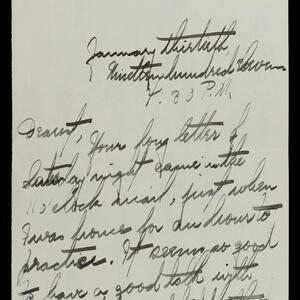 January thirtieth
Nineteen hundred eleven
4.30 P.M.
Dearest, Your long letter of
Saturday night came in the
11 o'clock mail, just when
I was home for an hour to
practice. It seems so good
to have a good talk with